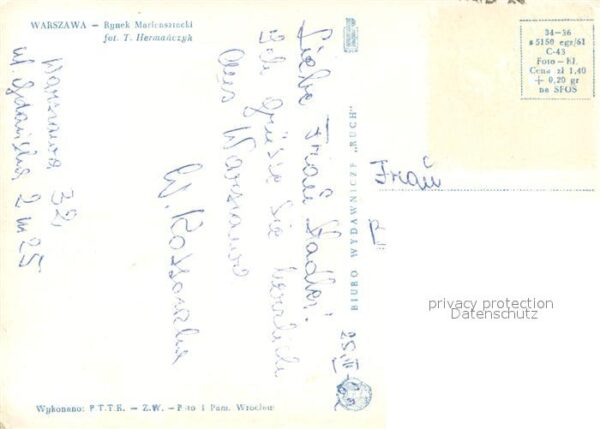 WARSZAWA — Rynek Mariensztacki
fot. T. Hermańczyk
34-36
s 5150 egz/61
C-43
Foto — Kl.
Cena zł 1,40
+ 0,20 gr
na SFOS
Liebe Frau
Ich grüße Sie herzlich
aus Warszawa
W.
Warszawa 32,
ul. Gdańska 2 m 25
BIURO WYDAWNICZE „RUCH"
Frau
privacy protection
Datenschutz
Wykonano: P.T.T.K. — Z.W. — Foto i Pam. Wrocław